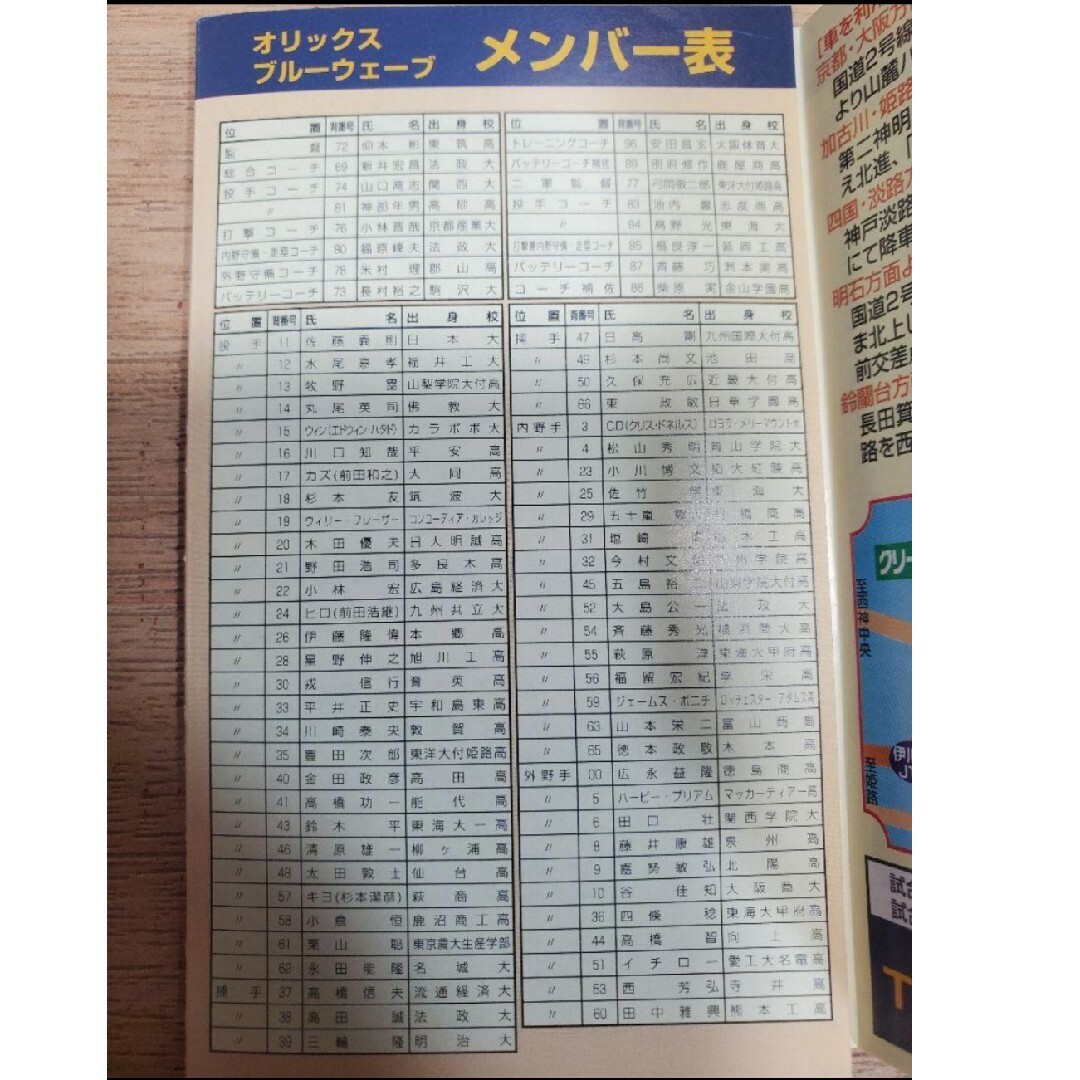 オリックス
ブルーウェーブ
メンバー表
位置 背番号 氏名 出身校
監督 72 仰木彬 東筑高
総合コーチ 69 新井宏昌 法政大
投手コーチ 74 山口高志 関西大
〃 81 神部年男 高砂高
打撃コーチ 76 小林晋哉 京都産業大
内野守備・走塁コーチ 80 福原峰夫 法政大
外野守備コーチ 78 米村理 郡山高
バッテリーコーチ 73 長村裕之 駒沢大
位置 背番号 氏名 出身校
トレーニングコーチ 96 安田昌玄 大阪体育大
バッテリーコーチ補佐 89 別府修作 鹿屋商高
二軍監督 77 弓岡敬二郎 東洋大付姫路高
投手コーチ 83 池内豊 志度商高
〃 84 高野光 東海大
打撃兼内野守備・走塁コーチ 85 福良淳一 延岡工高
バッテリーコーチ 87 斉藤巧 洲本実高
コーチ補佐 86 柴原実 金山学園高
位置 背番号 氏名 出身校
投手 11 佐藤義則 日本大
〃 12 水尾嘉孝 福井工大
〃 13 牧野塁 山梨学院大付高
〃 14 丸尾英司 佛教大
〃 15 ウィン(エドウィン・ハタド) カラボボ大
〃 16 川口知哉 平安高
〃 17 カズ(前田和之) 大同高
〃 18 杉本友 筑波大
〃 19 ウィリー・フレーザー コンコーディア・カレッジ
〃 20 木田優夫 日大明誠高
〃 21 野田浩司 多良木高
〃 22 小林宏 広島経済大
〃 24 ヒロ(前田浩継) 九州共立大
〃 26 伊藤隆偉 本郷高
〃 28 星野伸之 旭川工高
〃 30 戎信行 育英高
〃 33 平井正史 宇和島東高
〃 34 川崎泰央 敦賀高
〃 35 豊田次郎 東洋大付姫路高
〃 40 金田政彦 高田高
〃 41 高橋功一 能代高
〃 43 鈴木平 東海大一高
〃 46 清原雄一 柳ヶ浦高
〃 48 太田敦士 仙台高
〃 57 キヨ(杉本潔彦) 萩商高
〃 58 小倉恒 鹿沼商工高
〃 61 栗山聡 東京農大生産学部
〃 62 永田能隆 名城大
捕手 37 高橋信夫 流通経済大
〃 38 高田誠 法政大
〃 39 三輪隆 明治大
位置 背番号 氏名 出身校
捕手 47 日高剛 九州国際大付高
〃 49 杉本尚文 池田高
〃 50 久保充広 近畿大付高
〃 66 東政敏 日章学園高
内野手 3 C.D(クリス・ドネルス) ロヨラ・メリーマウント大
〃 4 松山秀明 青山学院大
〃 23 小川博文 拓大紅陵高
〃 25 佐竹学 東海大
〃 29 五十嵐 商高
〃 31 塩崎 工高
〃 32 今村文 学院高
〃 45 五島裕二 山梨学院大付高
〃 52 大島公一 法政大
〃 54 斉藤秀光 横浜商大高
〃 55 萩原淳 東海大甲府高
〃 56 福留宏紀 享栄高
〃 59 ジェームス・ボニチ ロッチェスター・アダムス高
〃 63 山本栄二 富山商高
〃 65 徳本政敬 木本高
外野手 00 広永益隆 徳島商高
〃 5 ハービー・プリアム マッカーティアー高
〃 6 田口壮 関西学院大
〃 8 藤井康雄 泉州高
〃 9 嘉勢敏弘 北陽高
〃 10 谷佳知 大阪商大
〃 36 四條稔 東海大甲府高
〃 44 高橋智 向上高
〃 51 イチロー 愛工大名電高
〃 53 西芳弘 寺井高
〃 60 田中雅興 熊本工高
[車を利
京都・大阪方
国道2号線
より山麓バ
加古川・姫路
第二神明
え北進、「
四国・淡路方
神戸淡路
にて降車
明石方面よ
国道2号
ま北上し
前交差点
鈴蘭台方
長田箕
路を西
クリー
至西神中央
至姫路
伊川
試合
試合
T